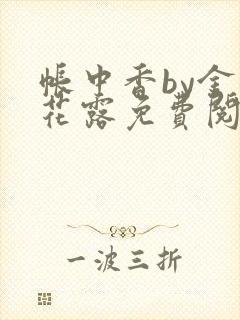 帳中香by金
花露免費閱
一波三折